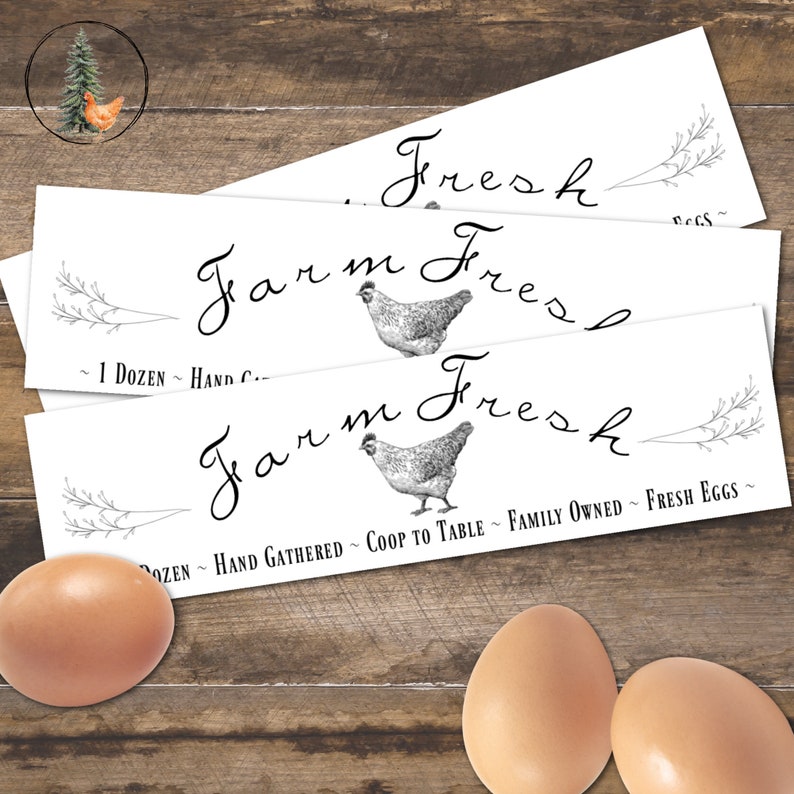 Fresh
Eggs ~
Farm Fresh
~ 1 Dozen ~ Hand
Farm Fresh
Dozen ~ Hand Gathered ~ Coop to Table ~ Family Owned ~ Fresh Eggs ~